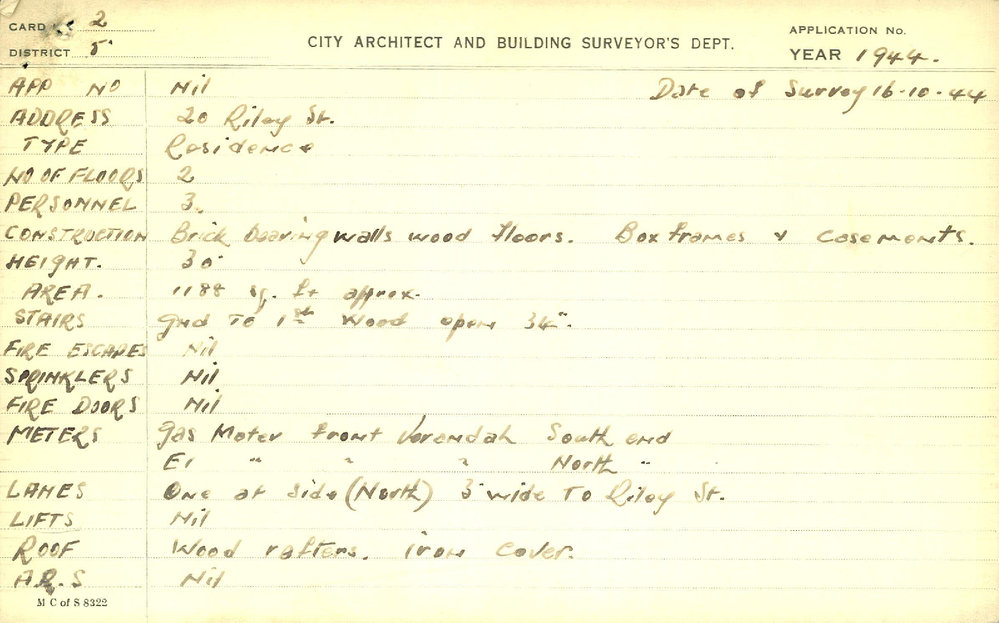 CARD 2
DISTRICT 5
CITY ARCHITECT AND BUILDING SURVEYOR'S DEPT.
APPLICATION No.
YEAR 1944.
APP NO Nil Date of Survey 16-10-44
ADDRESS 20 Riley St.
TYPE Residence
NO OF FLOORS 2
PERSONNEL 3.
CONSTRUCTION Brick bearing walls wood floors. Box frames & casements.
HEIGHT. 30'
AREA. 1188 sq. ft approx.
STAIRS Gnd To 1st Wood open 34".
FIRE ESCAPES Nil
SPRINKLERS Nil
FIRE DOORS Nil
METERS Gas Meter front Verandah South end
El " " " North "
LANES One at side (North) 3' wide To Riley St.
LIFTS Nil
ROOF Wood rafters. iron cover.
A.R.S Nil
M C of S 8322